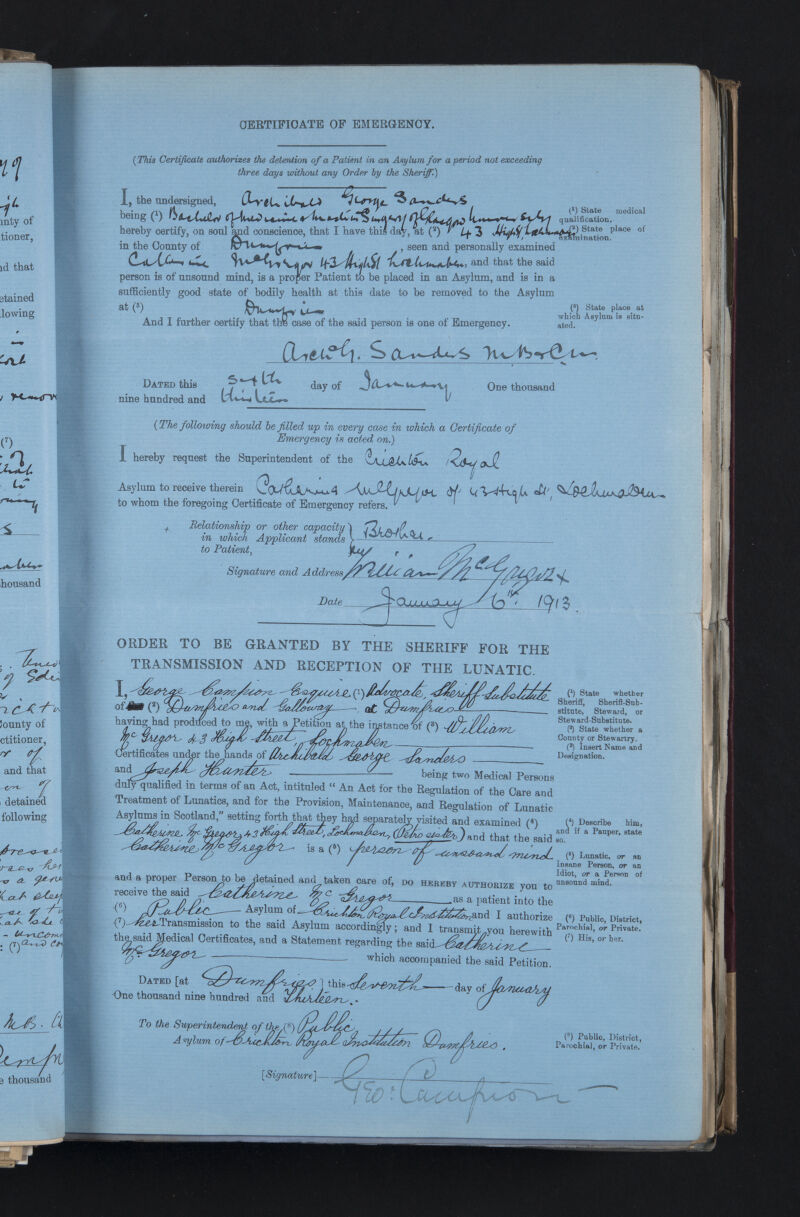 CERTIFICATE OF EMERGENCY.
(This Certificate authorizes the detention of a Patient in an Asylum for a period not exceeding
three days without any Order by the Sheriff.)
I, the undersigned, Archibald George Sanders
being (¹) Bachelor of Medicine & Master in Surgery of Glasgow University
hereby certify, on soul and conscience, that I have this day, at (²) 43 High St Lochmaben
in the County of Dumfries, seen and personally examined
Catherine McGregor 43 High St Lochmaben, and that the said
person is of unsound mind, is a proper Patient to be placed in an Asylum, and is in a
sufficiently good state of bodily health at this date to be removed to the Asylum
at (³) Dumfries
And I further certify that the case of the said person is one of Emergency.
(¹) State medical
qualification.
(²) State place of
examination.
(³) State place at
which Asylum is situ-
ated.
Archd G. Sanders M.B. & C.M.
DATED this sixth day of January One thousand
nine hundred and thirteen
(The following should be filled up in every case in which a Certificate of
Emergency is acted on.)
I hereby request the Superintendent of the Crichton Royal
Asylum to receive therein Catherine McGregor of 43 High St, Lochmaben
to whom the foregoing Certificate of Emergency refers.
Relationship or other capacity
in which Applicant stands
to Patient,
Brother.
Signature and Address, William McGregor
Date January 6th. 1913.
ORDER TO BE GRANTED BY THE SHERIFF FOR THE
TRANSMISSION AND RECEPTION OF THE LUNATIC.
I, George Campion Esquire (¹) Advocate, Sheriff Substitute
of (²) Dumfries and Galloway at Dumfries
having had produced to me, with a Petition at the instance of (³) William
McGregor 43 High Street Lochmaben
Certificates under the hands of Archibald George Sanders
and Joseph Hunter being two Medical Persons
duly qualified in terms of an Act, intituled "An Act for the Regulation of the Care and
Treatment of Lunatics, and for the Provision, Maintenance, and Regulation of Lunatic
Asylums in Scotland," setting forth that they had separately visited and examined (⁴)
Catherine McGregor, 43 High Street, Lochmaben, (Petrs sister) and that the said
Catherine McGregor is a (⁵) person of unsound mind
and a proper Person to be detained and taken care of, DO HEREBY AUTHORIZE you to
receive the said Catherine McGregor as a patient into the
(⁶) Public Asylum of Crichton Royal Institution, and I authorize
(⁷) her Transmission to the said Asylum accordingly; and I transmit you herewith
the said Medical Certificates, and a Statement regarding the said Catherine
McGregor which accompanied the said Petition.
DATED [at Dumfries] this Seventh day of January
One thousand nine hundred and Thirteen.
(¹) State whether
Sheriff, Sheriff-Sub-
stitute, Steward, or
Steward-Substitute.
(²) State whether a
County or Stewartry.
(³) Insert Name and
Designation.
(⁴) Describe him,
and if a Pauper, state
so.
(⁵) Lunatic, or an
insane Person, or an
Idiot, or a Person of
unsound mind.
(⁶) Public, District,
Parochial, or Private.
(⁷) His, or her.
To the Superintendent of the (⁸) Public
Asylum of Crichton Royal Institution Dumfries.
(⁸) Public, District,
Parochial, or Private.
[Signature] Geo: Campion